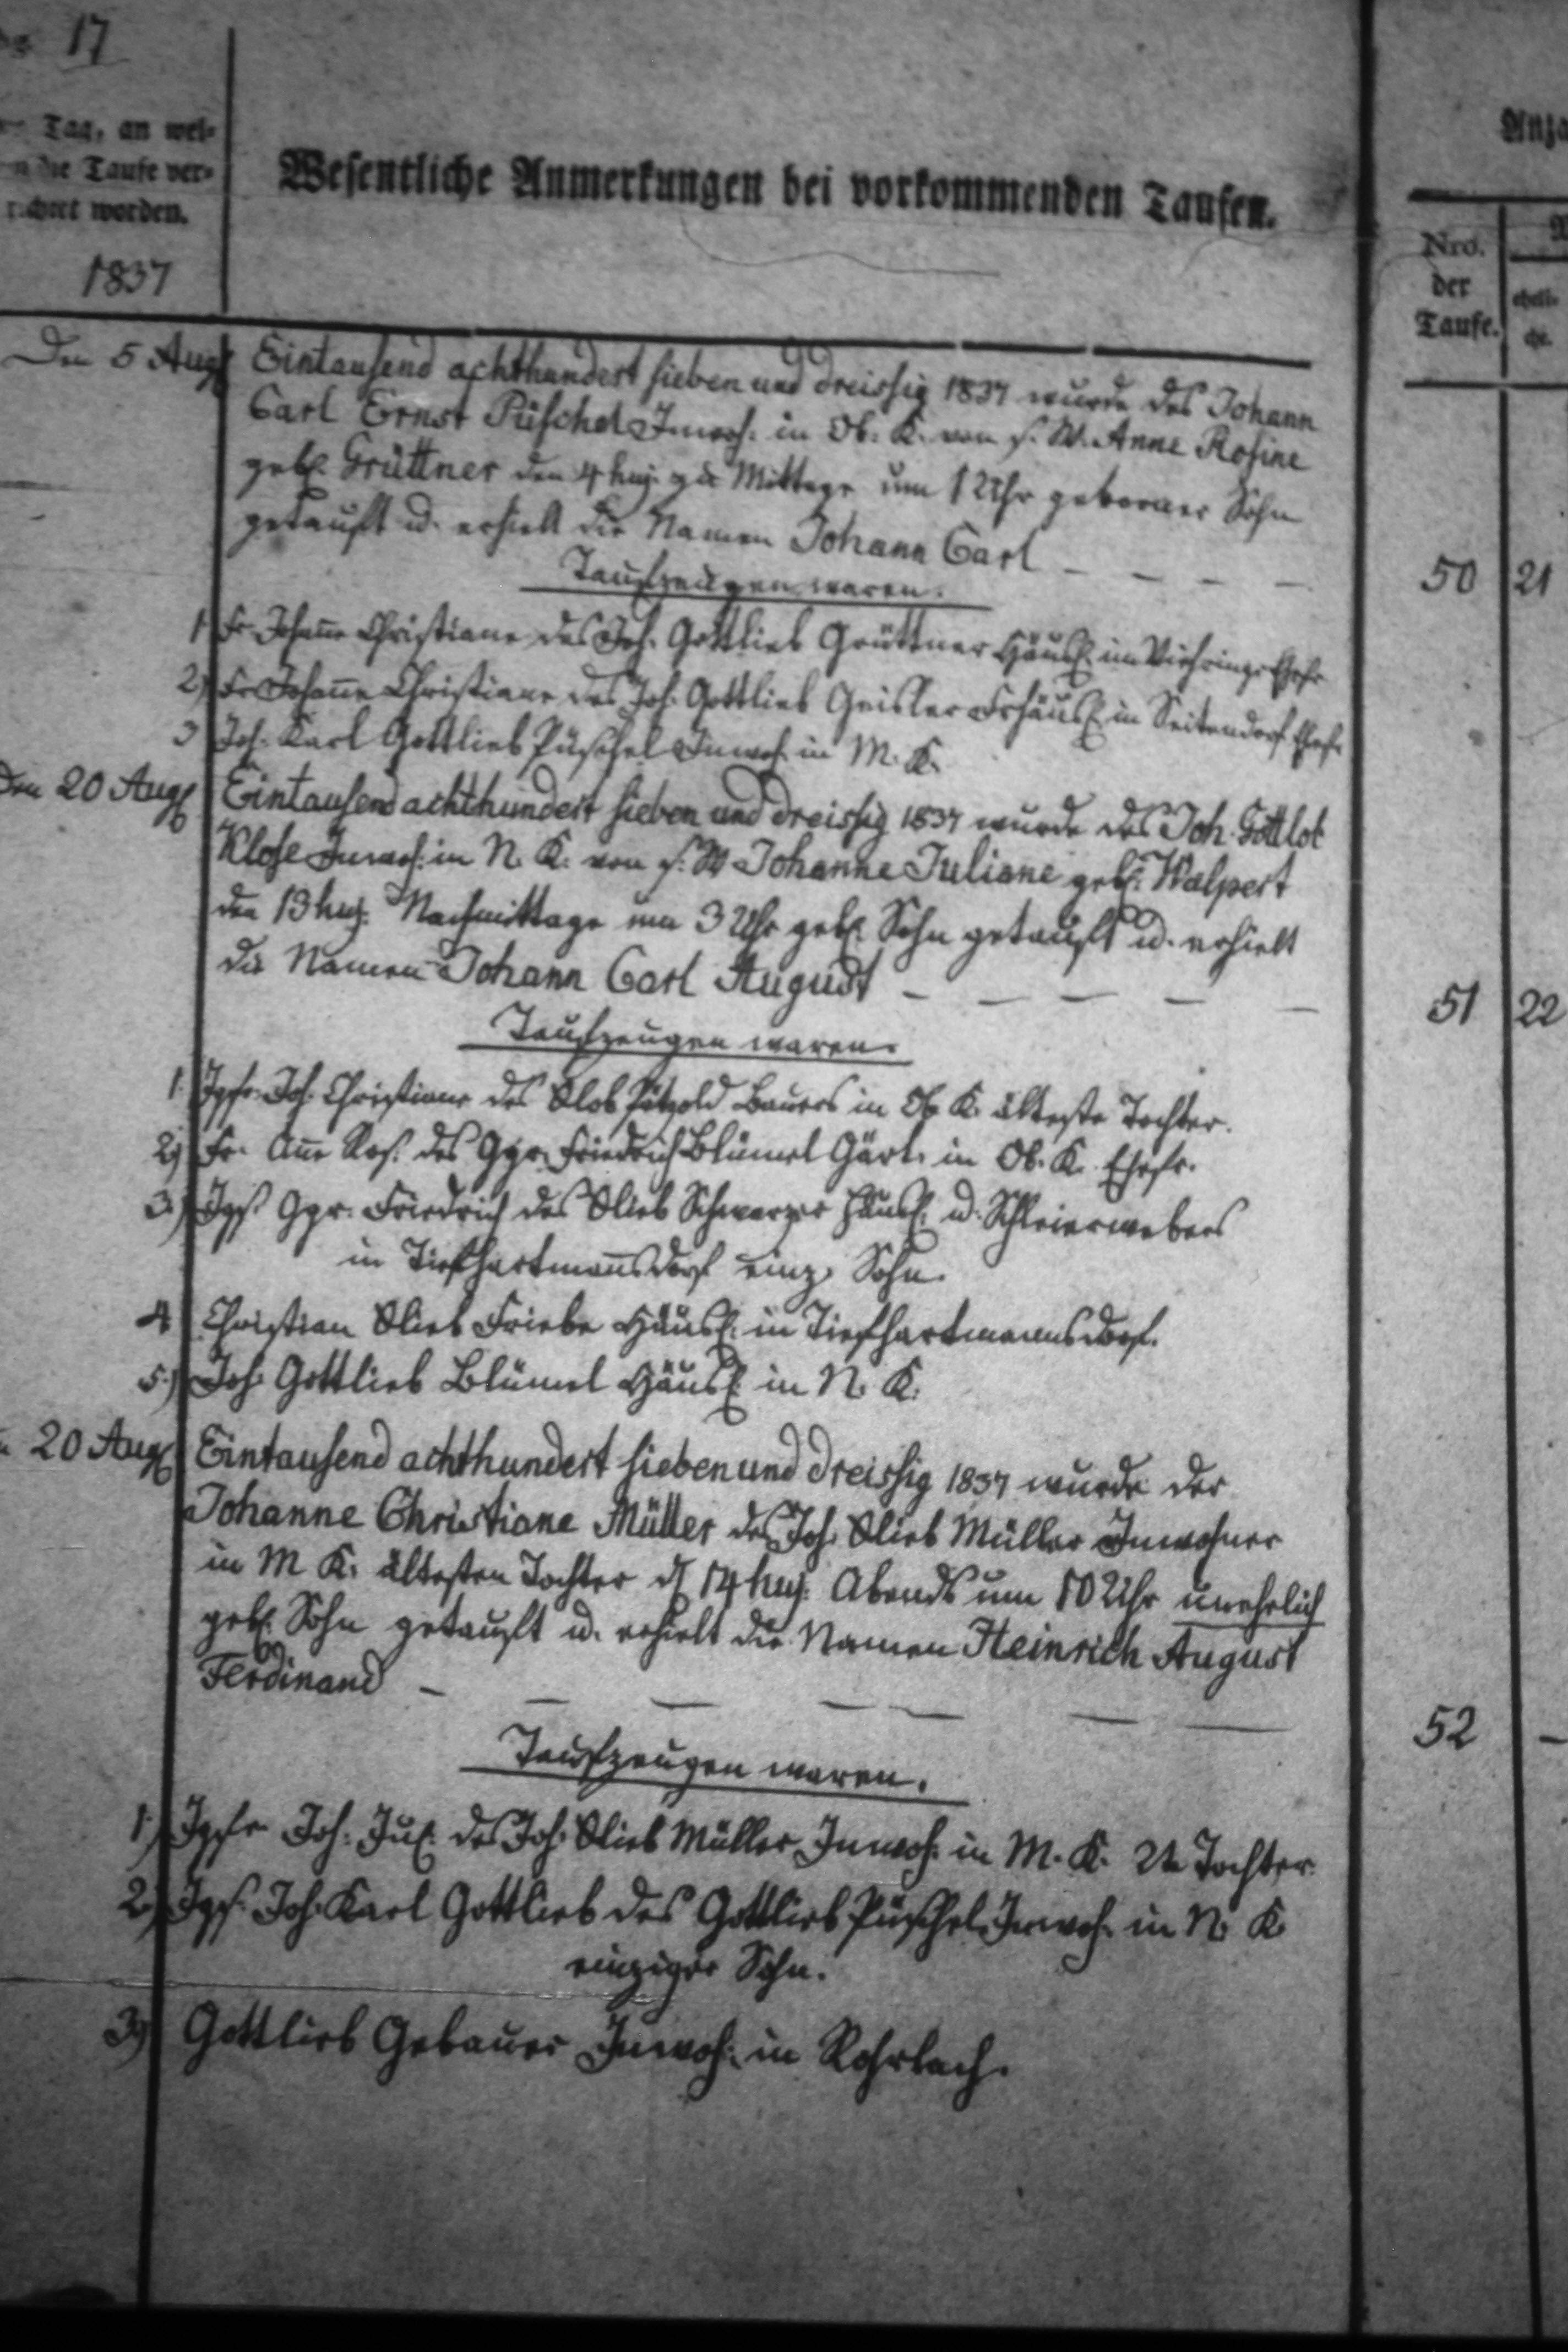 17
Tag, an wel-
die Taufe ver-
richtet worden.
1837
Wesentliche Anmerkungen bei vorkommenden Taufen.
Anza
Nro.
der
Taufe.
eheli-
che.
Den 5 Aug.
Eintausend achthundert sieben und dreissig 1837 wurde des Johann
Carl Ernst Püschel Inwoh. in Ob. K. von s. W. Anne Rosine
geb. Grüttner den 4 huj. zu Mittage um 1 Uhr geborner Sohn
getauft u. erhielt die Namen Johann Carl – – – –
50 21
Taufzeugen waren.
1 Fr. Johañe Christiane des Joh. Gottlieb Grüttner Häusl. im Ehefr.
2) Fr. Johañe Christiane des Joh. Gottlieb Geisler Frhäusl. in Seitendorf Ehefr.
3 Joh. Karl Gottlieb Püschel Inwoh. in M. K.
Den 20 Aug.
Eintausend achthundert sieben und dreissig 1837 wurde des Joh. Gottlob
Klose Inwoh. in N. K. von s. W Johanne Juliane geb. Walpert
den 13 huj. Nachmittage um 3 Uhr geb. Sohn getauft u. erhielt
die Namen Johann Carl August – – – – –
51 22
Taufzeugen waren.
1. Igfr. Joh. Christiane des Glob Pätzold Bauers in Ob. K. älteste Tochter.
2) Fr. Añe Ros. des Ggr. Friedrich Blümel Gärt. in Ob. K. Ehefr.
3.) Igs. Ggr. Friedrich des Glieb Schwarzer Häusl. u. Schleierwebers
in Tiefhartmañsdorf einz. Sohn.
4 Christian Glieb Friebe Häusl. in Tiefhartmannsdorf.
5.) Joh. Gottlieb Blümel Häusl. in N. K.
20 Aug.
Eintausend achthundert sieben und dreissig 1837 wurde der
Johanne Christiane Müller des Joh. Glieb Müller Inwohner
in M K. ältesten Tochter d. 14 huj. Abends um 10 Uhr unehelich
geb. Sohn getauft u. erhielt die Namen Heinrich August
Ferdinand – – – – – –
52 –
Taufzeugen waren.
1.) Igfr. Joh. Jul. des Joh. Glieb Müller Inwoh. in M. K. 2te Tochter.
2.) Igs. Joh. Karl Gottlieb des Gottlieb Püschel Inwoh. in N. K
einziger Sohn.
3) Gottlieb Gebauer Inwoh. in Rohrlach.